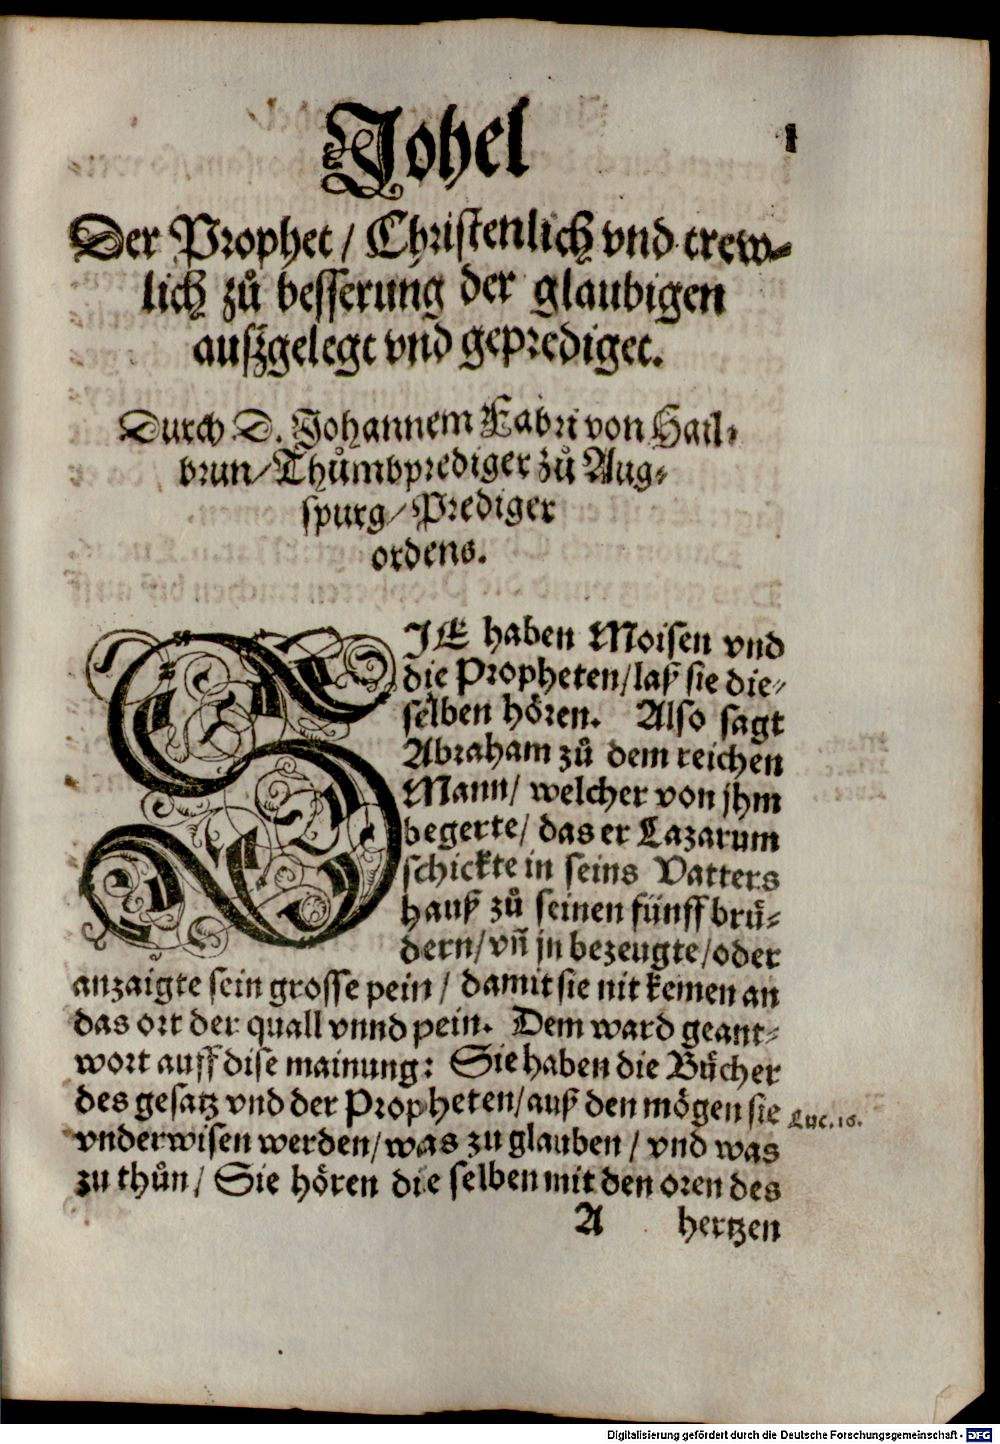 1
Johel
Der Prophet / Christenlich vnd trew-
lich zů besserung der glaubigen
auszgelegt vnd geprediget.
Durch D. Johannem Fabri von Hail-
brun / Thůmbprediger zů Aug-
spurg / Prediger
ordens.
SIE haben Moisen vnd
die Propheten / laß sie die-
selben hören. Also sagt
Abraham zů dem reichen
Mann / welcher von jhm
begerte / das er Lazarum
schickte in seins Vatters
hauß zů seinen fünff brü-
dern / vñ jn bezeugte / oder
anzaigte sein grosse pein / damit sie nit kemen an
das ort der quall vnnd pein. Dem ward geant-
wort auff dise mainung: Sie haben die Bücher
des gesatz vnd der Propheten / auß den mögen sie
Luc. 16.
vnderwisen werden / was zu glauben / vnd was
zu thůn / Sie hören die selben mit den oren des
A hertzen
Digitalisierung gefördert durch die Deutsche Forschungsgemeinschaft - DFG